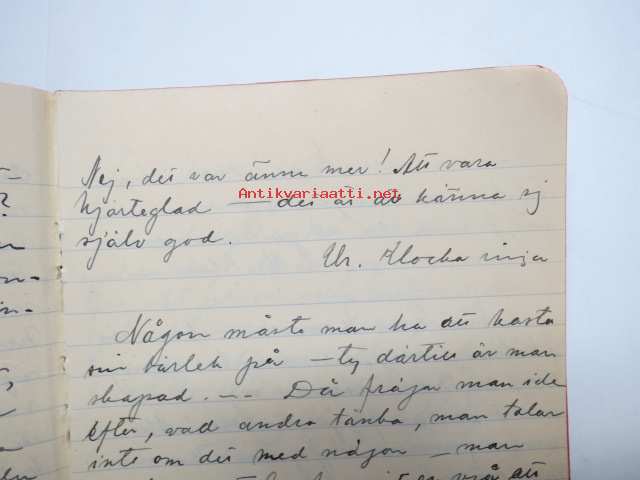 Nej, det var ännu mer! Att vara
Antikvariaatti.net
hjärteglad — det är att känna sig
själv god.
Ur. Klocka
Någon måste man ha att kasta
sin kärlek på — ty därtill är man
skapad. -- Då frågar man icke
efter, vad andra tänka, man talar
inte om det med någon — man